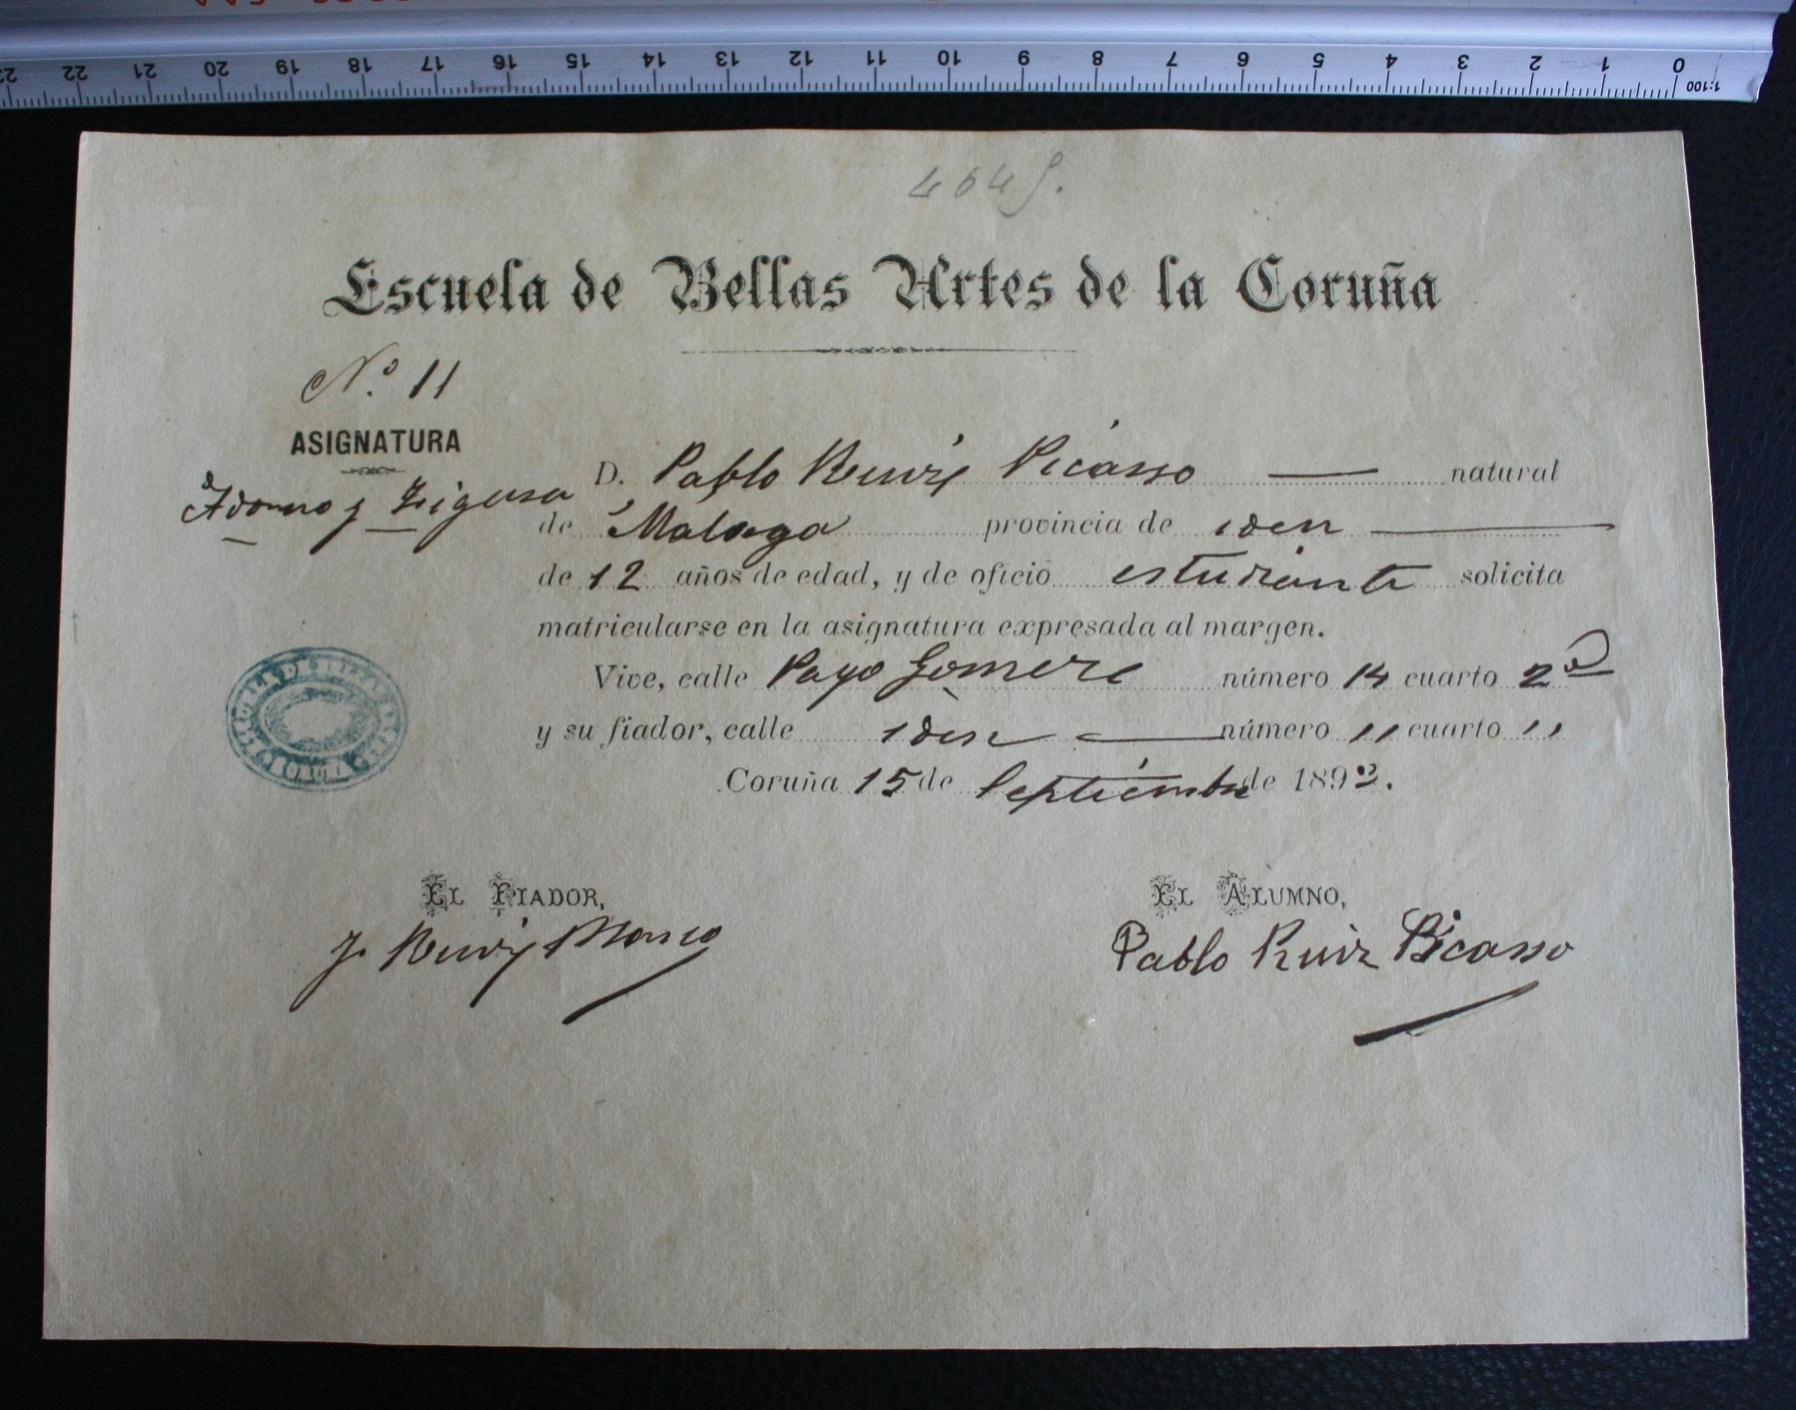 23 22 21 20 19 18 17 16 15 14 13 12 11 10 9 8 7 6 5 4 3 2 1 0 1:100
Escuela de Bellas Artes de la Coruña
N.º 11
ASIGNATURA
Adorno y Figura
D. Pablo Ruiz Picasso natural
de Málaga provincia de iden
de 12 años de edad, y de oficio estudiante solicita
matricularse en la asignatura expresada al margen.
Vive, calle Payo Gomere número 14 cuarto 2º
y su fiador, calle iden número 11 cuarto 11
Coruña 15 de Septiembre de 1893.
EL FIADOR,
EL ALUMNO,
J. Ruiz Blasco
Pablo Ruiz Picasso